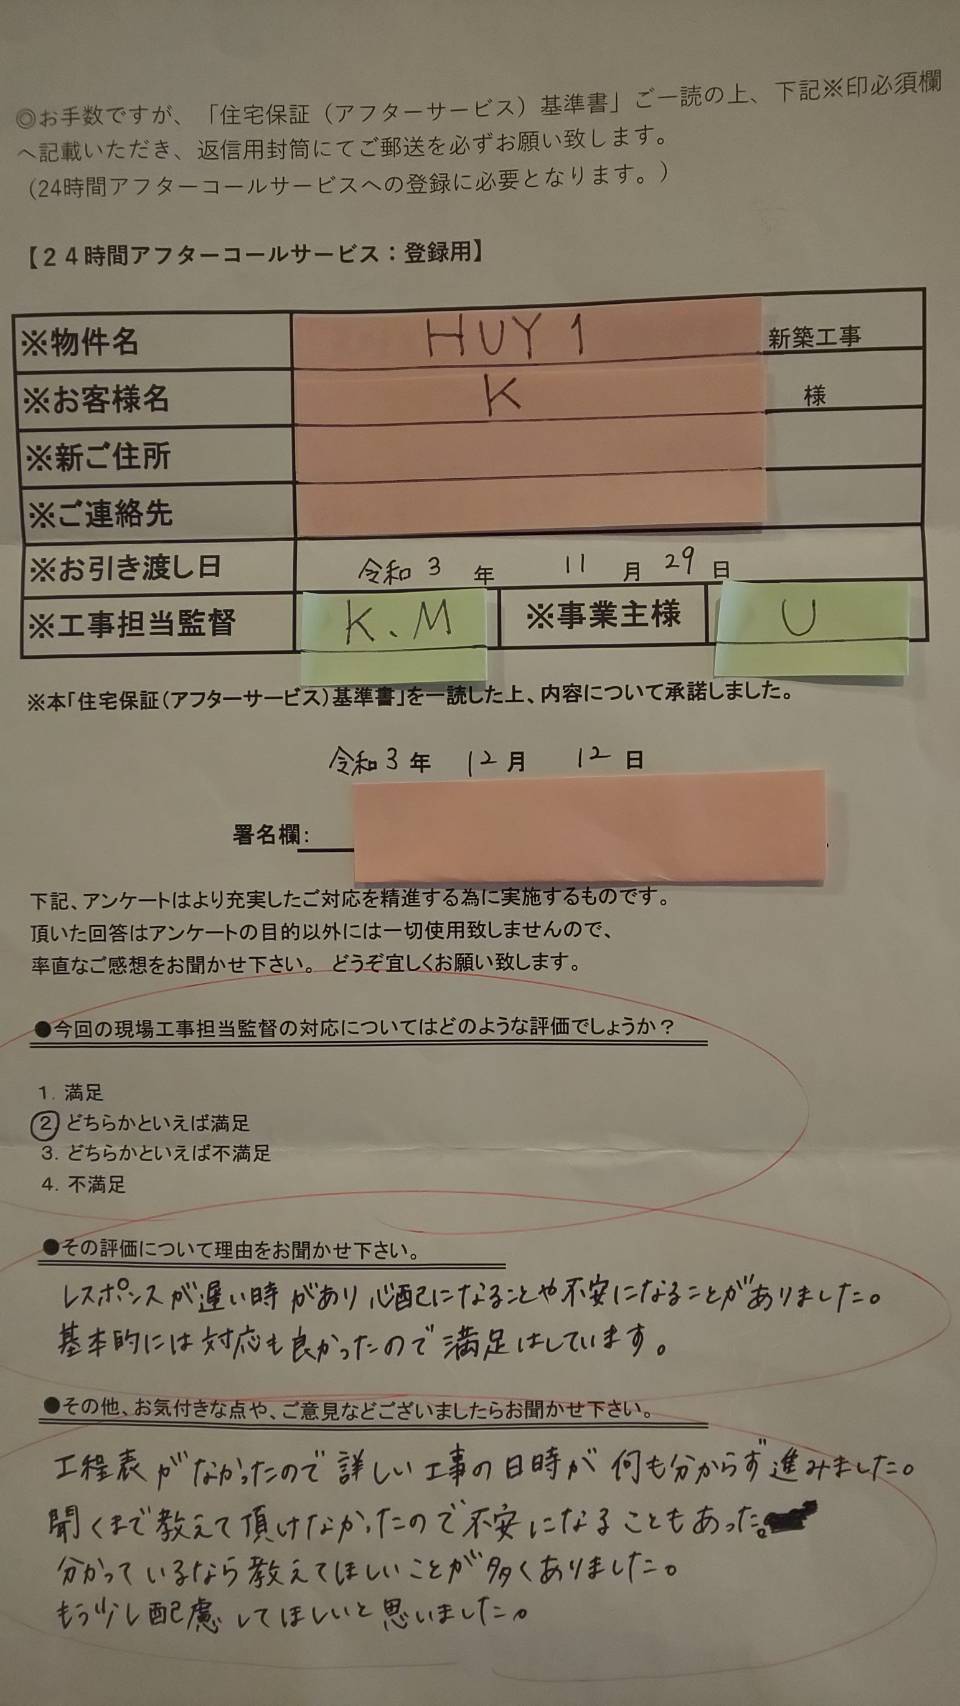 ◎お手数ですが、「住宅保証（アフターサービス）基準書」ご一読の上、下記※印必須欄
へ記載いただき、返信用封筒にてご郵送を必ずお願い致します。
（24時間アフターコールサービスへの登録に必要となります。）
【２４時間アフターコールサービス：登録用】
※物件名 HUY1 新築工事
※お客様名 K 様
※新ご住所
※ご連絡先
※お引き渡し日 令和3年 11月29日
※工事担当監督 K.M ※事業主様 U
※本「住宅保証（アフターサービス）基準書」を一読した上、内容について承諾しました。
令和3年 12月 12日
署名欄：
下記、アンケートはより充実したご対応を精進する為に実施するものです。
頂いた回答はアンケートの目的以外には一切使用致しませんので、
率直なご感想をお聞かせ下さい。 どうぞ宜しくお願い致します。
●今回の現場工事担当監督の対応についてはどのような評価でしょうか？
1. 満足
② どちらかといえば満足
3. どちらかといえば不満足
4. 不満足
●その評価について理由をお聞かせ下さい。
レスポンスが遅い時があり心配になることや不安になることがありました。
基本的には対応も良かったので満足はしています。
●その他、お気付きな点や、ご意見などございましたらお聞かせ下さい。
工程表がなかったので詳しい工事の日時が何も分からず進みました。
聞くまで教えて頂けなかったので不安になることもあった。
分かっているなら教えてほしいことが多くありました。
もう少し配慮してほしいと思いました。